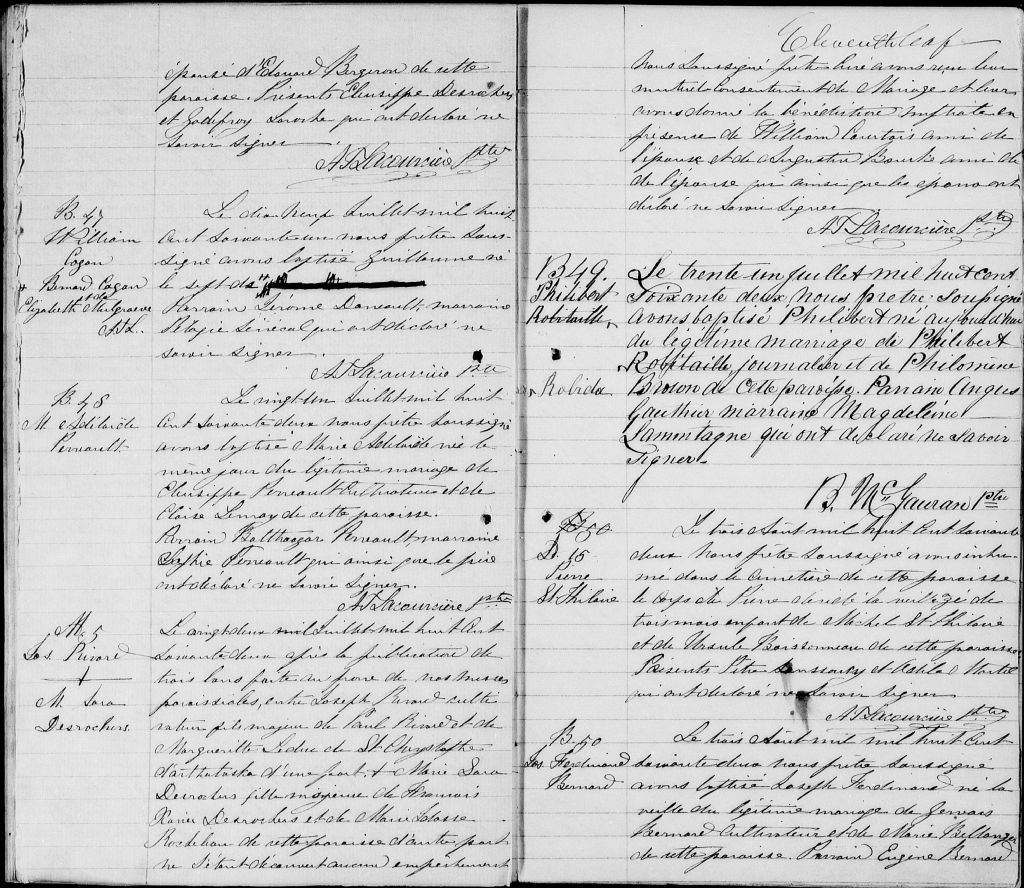 épouse d'Edouard Bergeron de cette
paroisse. Présents Eleusippe Desrochers
et Godefroy Laroche qui ont declaré ne
savoir signer.
N. Lacourcière Ptre
B. 47
William
Cogan
Bernard Cogan
& de
Elizabeth Mulgrave
Le dix neuf Juillet mil huit
cent soixante un nous prêtre sous-
signé avons baptisé Guillaume né
le sept
Parrain Jérôme Daneault, marraine
Pélagie Sénécal qui ont declaré ne
savoir signer.
N. Lacourcière Ptre
B. 48
M. Adélaïde
Perreault
Le vingt un Juillet mil huit
cent soixante deux nous prêtre soussigné
avons baptisé Marie Adélaide née le
même jour du légitime mariage de
Eleusippe Perreault Cultivateur et de
Eloïse Lemay de cette paroisse.
Parrain Balthazar Perreault marraine
Sophie Perreault qui ainsi que le père
ont declaré ne savoir signer.
N. Lacourcière Ptre
M. 5
Jos. Rivard
+
M. Sara
Desrochers
Le vingt deux mil Juillet mil huit cent
soixante deux après la publication de
trois bans faite au prone de nos messes
paroissiales, entre Joseph Rivard culti
vateur fils majeur de Paul Rivard et de
Marguerite Leduc de St Chrystophe
d'arthabaska d'une part, & Marie Sara
Desrochers fille mineure de François
Xavier Desrochers et de Marie
Rocheleau de cette paroisse d'autre part
ne s'étant découvert aucun empêchement
Eleventh leaf
nous soussigné prêtre Curé avons reçu leur
mutuel consentement de Mariage et leur
avons donné la bénédiction nuptiale en
présence de William Courtois ami de
l'épouse et de Augustin Bourke ami de
de l'épouse qui ainsi que les époux ont
déclaré ne savoir signer
N. Lacourcière Ptre
B 49.
Philibert
Robitaille
Robida
Le trente un juillet mil huit cent
Soixante deux nous pretre soussigné
avons baptisé Philibert né aujourd'hui
du légitime marriage de Philibert
Robitaille, journalier et de Philomène
Brown de Cette paroisse. Parrain Angus
Gauthier marraine Magdeleine
Lammtagne qui ont declaré ne savoir
Signer.
B. McGauran Ptre
B 50
D. 15
Pierre
St. Hilaire
Le trois Août mil huit cent soixante
deux nous prêtre soussigné avons inhu-
mé dans le cimetière de cette paroisse
le corps de Pierre décédé la veille agé de
trois mois enfant de Michel St. Hilaire
et de Ursule Boissonneau de cette paroisse
Présents Peter et
qui ont declaré ne savoir signer
N. Lacourcière Ptre
B. 50
Jos. Ferdinand
Bernard
Le trois Août mil mil huit cent
soixante deux nous prêtre soussigné
avons baptisé Joseph Ferdinand né la
veille du légitime mariage de Gervais
Bernard Cultivateur et de Marie Bellanger
de cette paroisse. Parrain Eugène Bernard